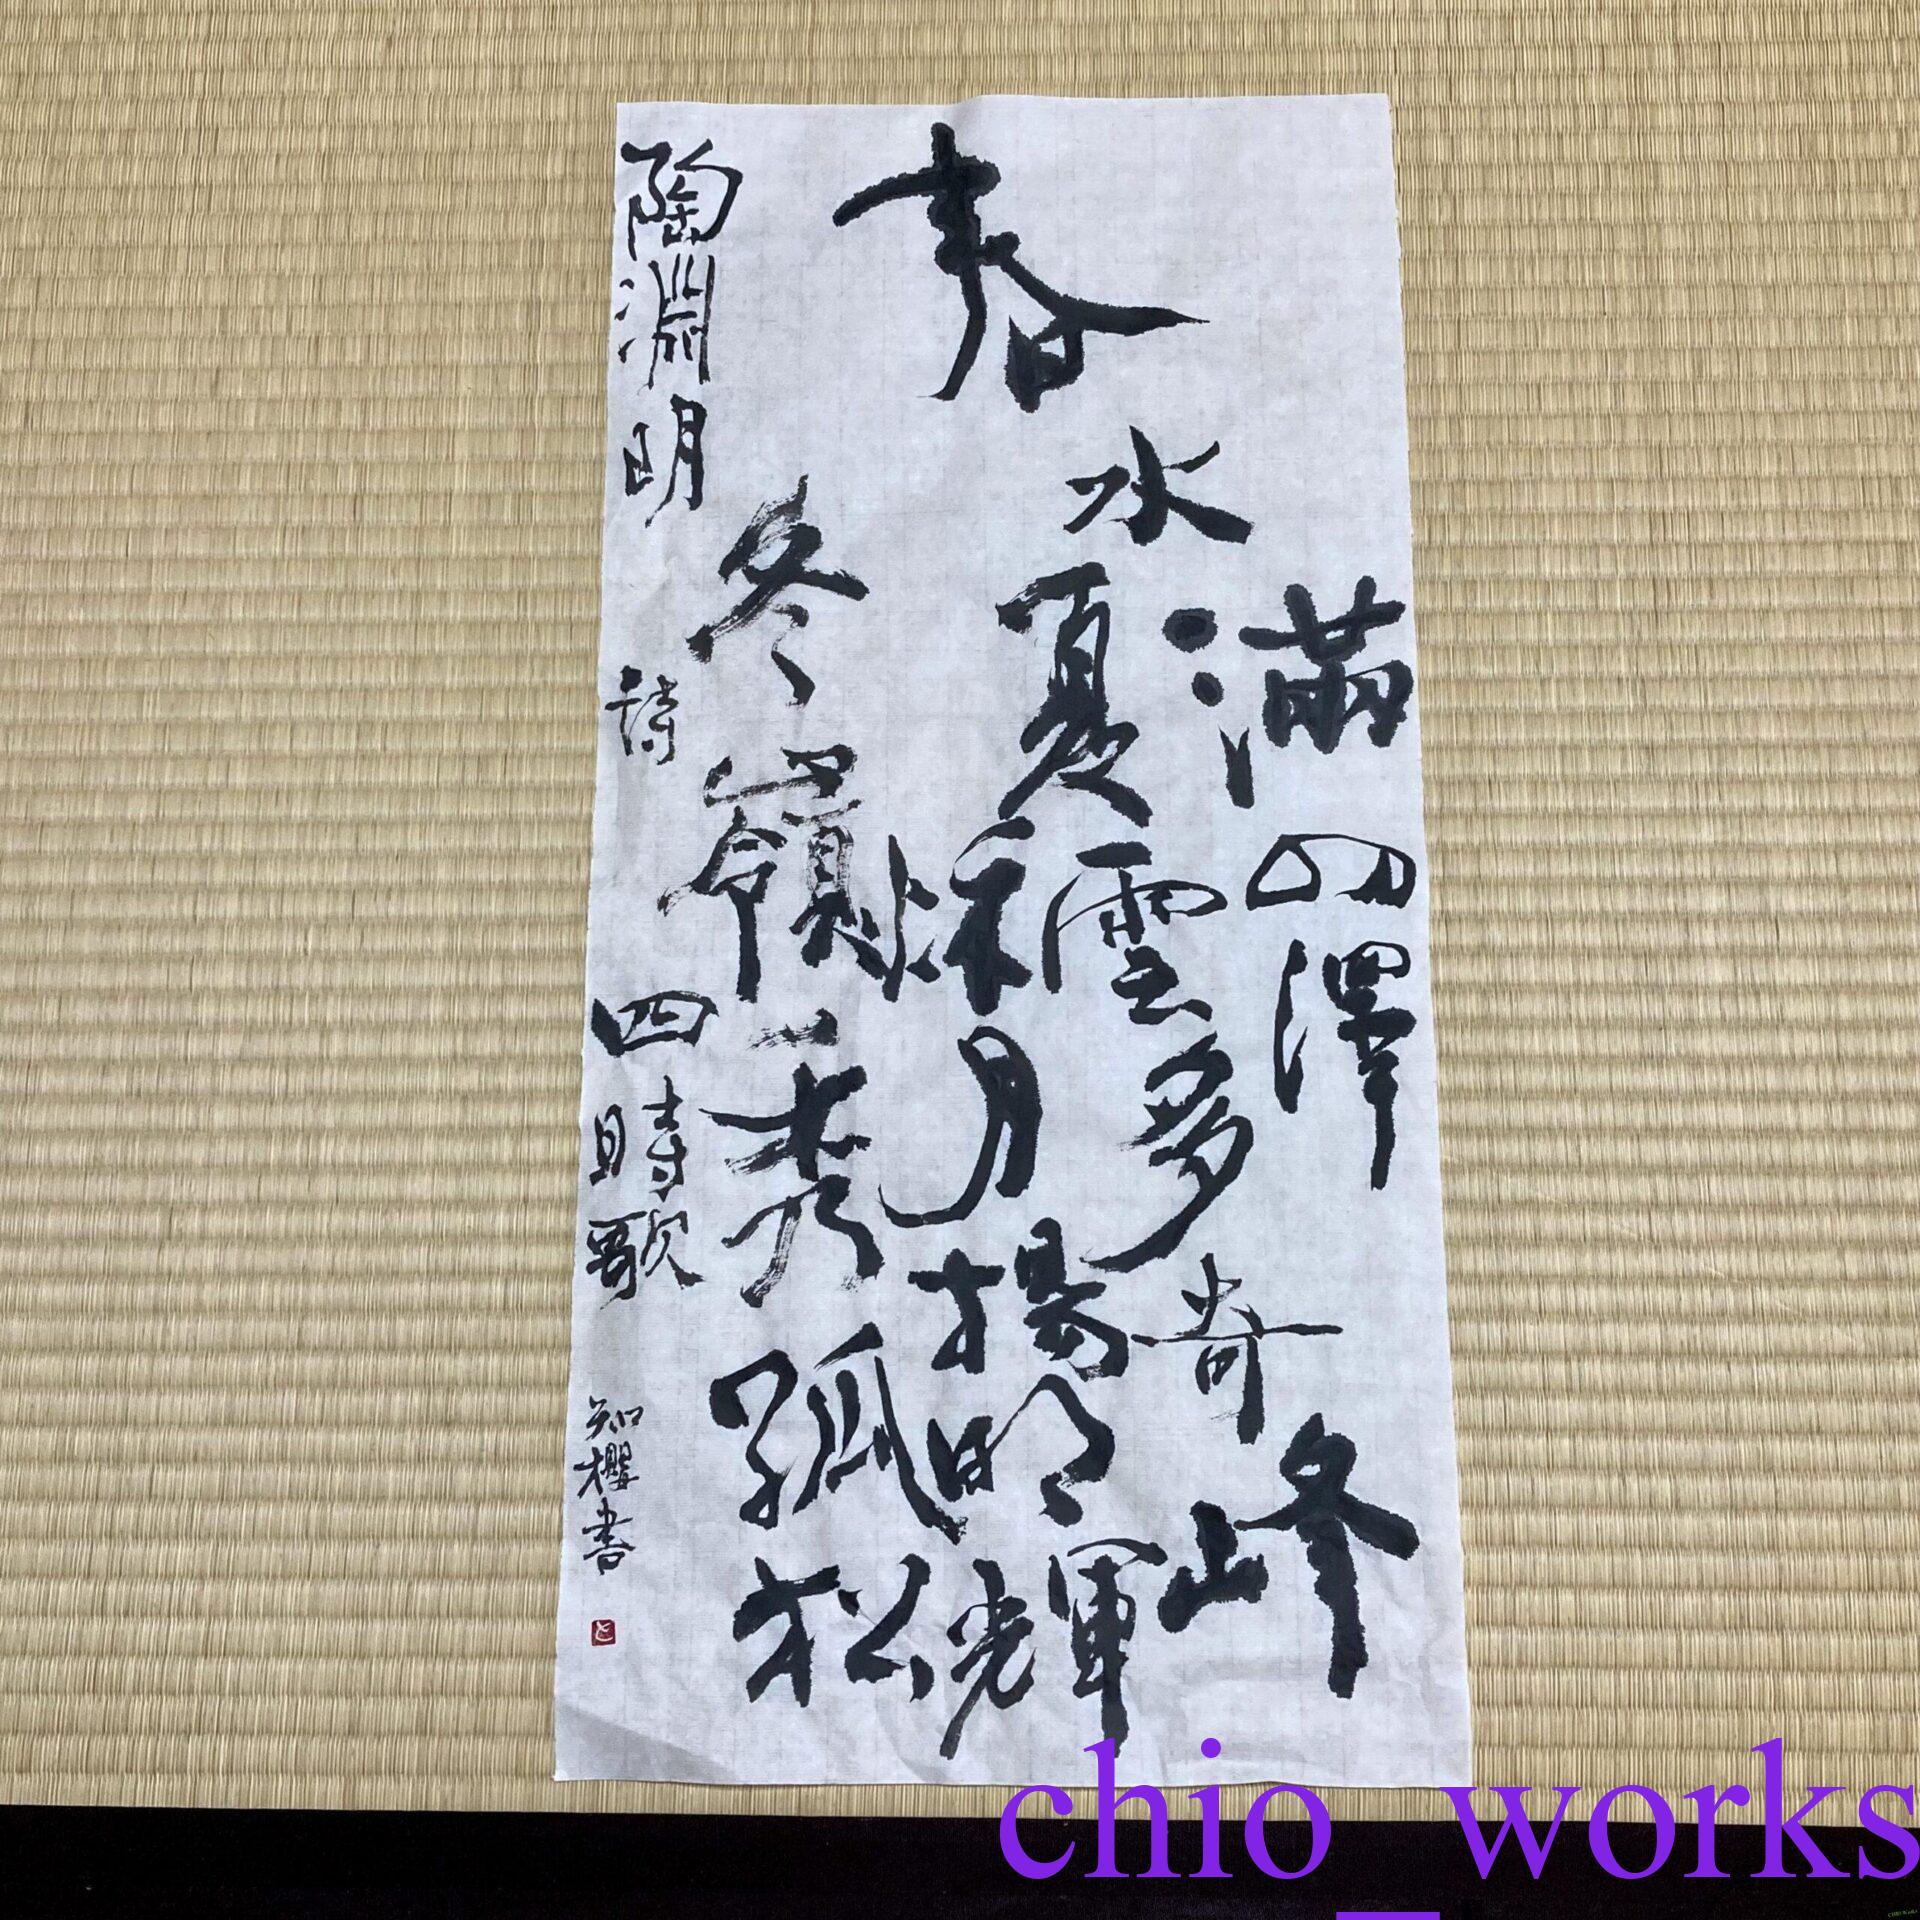 春水滿四澤
夏雲多奇峰
秌月揚明輝
冬嶺秀孤松
陶淵明 詩 四時歌
知櫻書
chio_works